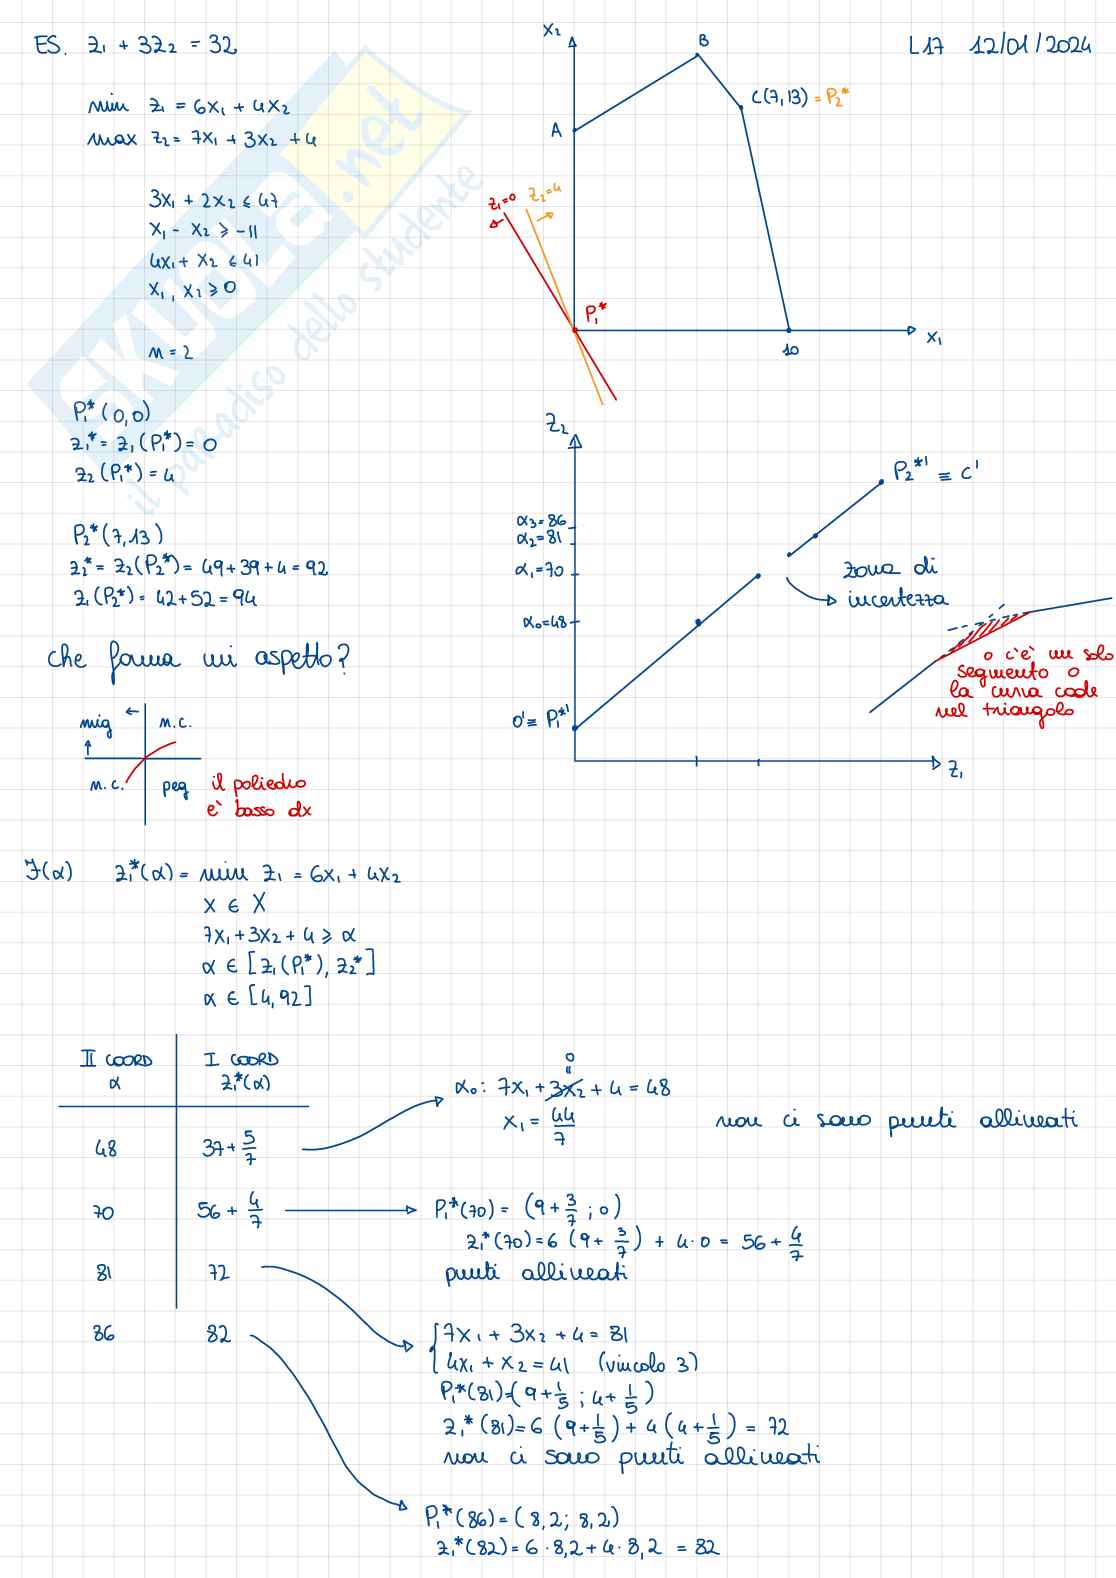 ES. z₁ + 3z₂ = 32
L17 12/01/2024
min z₁ = 6x₁ + 4x₂
max z₂ = 7x₁ + 3x₂ + 4
3x₁ + 2x₂ ≤ 47
x₁ - x₂ ≥ -11
4x₁ + x₂ ≤ 41
x₁, x₂ ≥ 0
n = 2
x₂
B
C(7,13) = P₂*
A
z₁=0
z₂=4
P₁*
10
x₁
SKUOLA.net
il paradiso dello studente
P₁*(0,0)
z₁* = z₁(P₁*) = 0
z₂(P₁*) = 4
P₂*(7,13)
z₂* = z₂(P₂*) = 49+39+4 = 92
z₁(P₂*) = 42+52 = 94
che forma mi aspetto?
mig ← n.c.
↑
n.c. peg
il poliedro
è basso dx
z₂
P₂*' ≡ C'
α₃=86
α₂=81
α₁=70
α₀=48
zona di
incertezza
0' ≡ P₁*'
z₁
o c'è un solo
segmento o
la curva cade
nel triangolo
F(α) z₁*(α) = min z₁ = 6x₁ + 4x₂
x ∈ X
7x₁ + 3x₂ + 4 ≥ α
α ∈ [z₁(P₁*), z₂*]
α ∈ [4, 92]
II COORD I COORD
α z₁*(α)
48 37 + 5/7
70 56 + 4/7
81 72
86 82
0
"
α₀: 7x₁ + 3x₂ + 4 = 48
x₁ = 44/7
non ci sono punti allineati
P₁*(70) = (9 + 3/7 ; 0)
z₁*(70) = 6 (9 + 3/7) + 4·0 = 56 + 4/7
punti allineati
{7x₁ + 3x₂ + 4 = 81
4x₁ + x₂ = 41 (vincolo 3)
P₁*(81)=(9+1/5 ; 4+1/5)
z₁*(81) = 6 (9+1/5) + 4 (4+1/5) = 72
non ci sono punti allineati
P₁*(86) = (8,2; 8,2)
z₁*(82) = 6 · 8,2 + 4 · 8,2 = 82